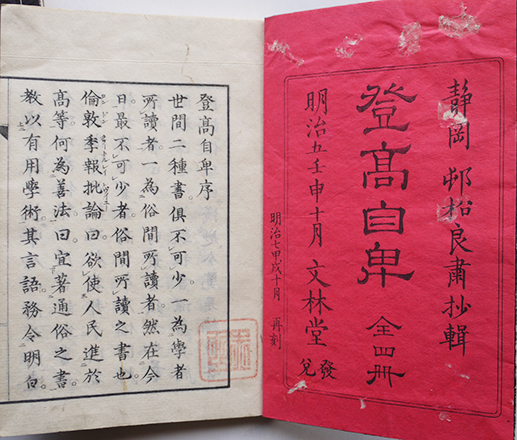 静岡 邨松良肅抄輯
登高自卑 全四冊
明治五壬申十月 文林堂 發兌
明治七甲戌十月 再刻
登高自卑序
世間二種書俱不可少一為學者
所讀者一為俗間所讀者然在今
日最不可少者俗間所讀之書也
倫敦季報批論曰欲使人民進於
高等何為善法曰宜著通俗之書
教以有用學術其言語務令明白